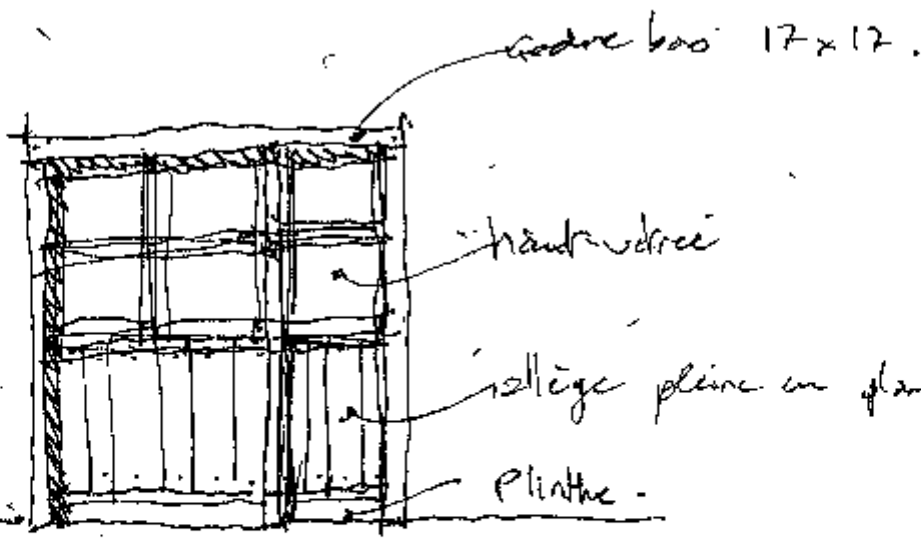 cadre bois 17x17.
haut vitrée
allège pleine en plan
plinthe.